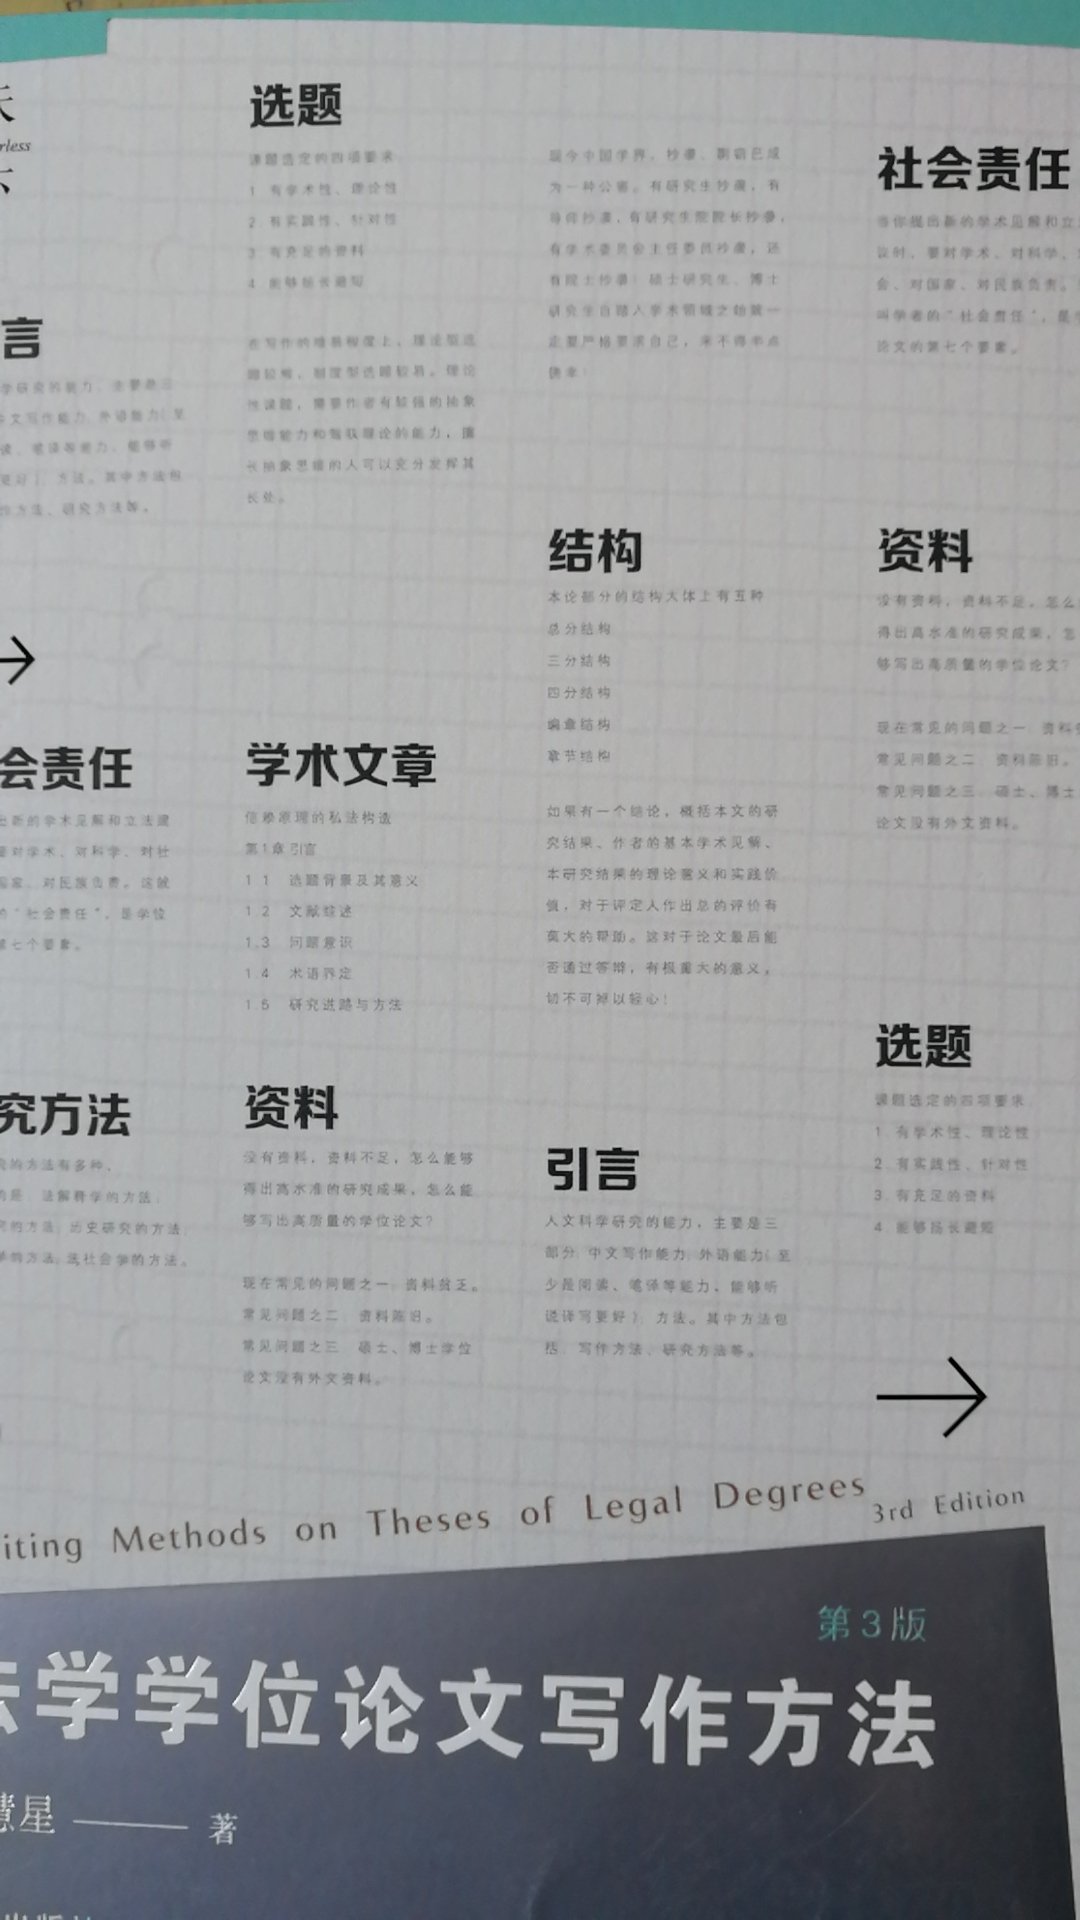 rless
言
学研究的能力，主要是三
中文写作能力，外语能力（至
读、笔译等能力，能够听
更好）；方法。其中方法包
作方法、研究方法等。
会责任
出新的学术见解和立法建
要对学术、对科学、对社
国家、对民族负责。这就
的“社会责任”，是学位
第七个要素。
究方法
究的方法有多种，
的是：法解释学的方法；
究的方法；历史研究的方法；
法社会学的方法。
选题
课题选定的四项要求：
1. 有学术性、理论性
2. 有实践性、针对性
3. 有充足的资料
4. 能够扬长避短
在写作的难易程度上，理论型选
题较难，制度型选题较易。理论
性课题，需要作者有较强的抽象
思维能力和驾驭理论的能力，擅
长抽象思维的人可以充分发挥其
长处。
学术文章
信赖原理的私法构造
第1章 引言
1.1 选题背景及其意义
1.2 文献综述
1.3 问题意识
1.4 术语界定
1.5 研究进路与方法
资料
没有资料，资料不足，怎么能够
得出高水准的研究成果，怎么能
够写出高质量的学位论文？
现在常见的问题之一：资料贫乏。
常见问题之二：资料陈旧。
常见问题之三：硕士、博士学位
论文没有外文资料。
现今中国学界，抄袭、剽窃已成
为一种公害。有研究生抄袭，有
导师抄袭，有研究生院院长抄袭，
有学术委员会主任委员抄袭，还
有院士抄袭！硕士研究生、博士
研究生自踏入学术领域之始就一
定要严格要求自己，来不得半点
侥幸！
结构
本论部分的结构大体上有五种：
总分结构
三分结构
四分结构
编章结构
章节结构
如果有一个结论，概括本文的研
究结果、作者的基本学术见解、
本研究结果的理论意义和实践价
值，对于评定人作出总的评价有
莫大的帮助。这对于论文最后能
否通过答辩，有极重大的意义，
切不可掉以轻心！
引言
人文科学研究的能力，主要是三
部分：中文写作能力；外语能力（至
少是阅读、笔译等能力，能够听
说译写更好）；方法。其中方法包
括：写作方法、研究方法等。
社会责任
当你提出新的学术见解和立
议时，要对学术、对科学、
会、对国家、对民族负责。
叫学者的“社会责任”，是
论文的第七个要素。
资料
没有资料，资料不足，怎么
得出高水准的研究成果，怎
够写出高质量的学位论文？
现在常见的问题之一：资料
常见问题之二：资料陈旧。
常见问题之三：硕士、博士
论文没有外文资料。
选题
课题选定的四项要求：
1. 有学术性、理论性
2. 有实践性、针对性
3. 有充足的资料
4. 能够扬长避短
iting Methods on Theses of Legal Degrees
3rd Edition
第3版
法学学位论文写作方法
慧星 著